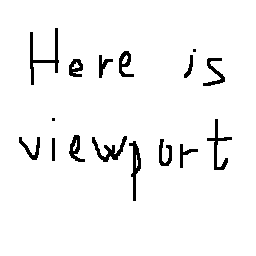 Here is
viewport